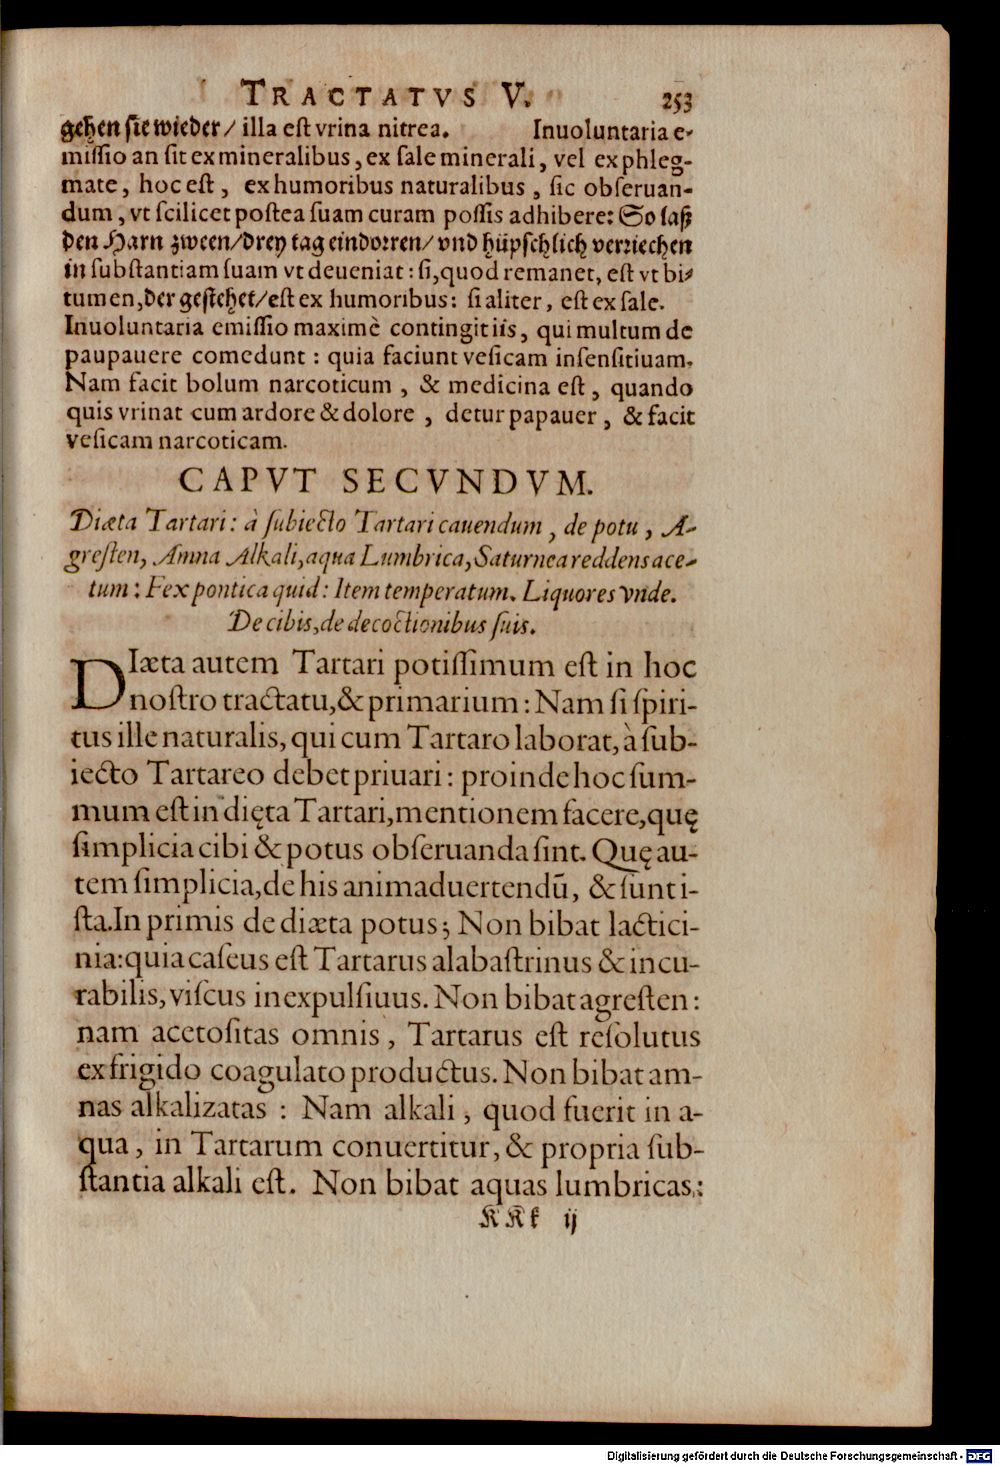 TRACTATVS V. 253
gehen sie wieder/ illa eſt vrina nitrea. Inuoluntaria e-
miſſio an ſit ex mineralibus, ex ſale minerali, vel ex phleg-
mate, hoc eſt, ex humoribus naturalibus, ſic obſeruan-
dum, vt ſcilicet poſtea ſuam curam poſſis adhibere: So laß
den Harn zween/ drey tag eindorren/ vnd hüpſchlich verriechen
in ſubſtantiam ſuam vt deueniat: ſi, quod remanet, eſt vt bi-
tumen, der geſtehet/ eſt ex humoribus: ſi aliter, eſt ex ſale.
Inuoluntaria emiſſio maximè contingit iis, qui multum de
paupauere comedunt: quia faciunt veſicam inſenſitiuam.
Nam facit bolum narcoticum, & medicina eſt, quando
quis vrinat cum ardore & dolore, detur papauer, & facit
veſicam narcoticam.
CAPVT SECVNDVM.
Diæta Tartari: à ſubiecto Tartari cauendum, de potu, A-
greſten, Amna Alkali, aqua Lumbrica, Saturnea reddens ace-
tum: Fex pontica quid: Item temperatum. Liquores vnde.
De cibis, de decoctionibus ſuis.
DIæta autem Tartari potiſſimum eſt in hoc
noſtro tractatu, & primarium: Nam ſi ſpiri-
tus ille naturalis, qui cum Tartaro laborat, à ſub-
iecto Tartareo debet priuari: proinde hoc ſum-
mum eſt in dięta Tartari, mentionem facere, quę
ſimplicia cibi & potus obſeruanda ſint. Quę au-
tem ſimplicia, de his animaduertendū, & ſunt i-
ſta. In primis de diæta potus; Non bibat lactici-
nia: quia caſeus eſt Tartarus alabaſtrinus & incu-
rabilis, viſcus inexpulſiuus. Non bibat agreſten:
nam acetoſitas omnis, Tartarus eſt reſolutus
ex frigido coagulato productus. Non bibat am-
nas alkalizatas : Nam alkali, quod fuerit in a-
qua, in Tartarum conuertitur, & propria ſub-
ſtantia alkali eſt. Non bibat aquas lumbricas:
KKk ij
Digitalisierung gefördert durch die Deutsche Forschungsgemeinschaft - DFG